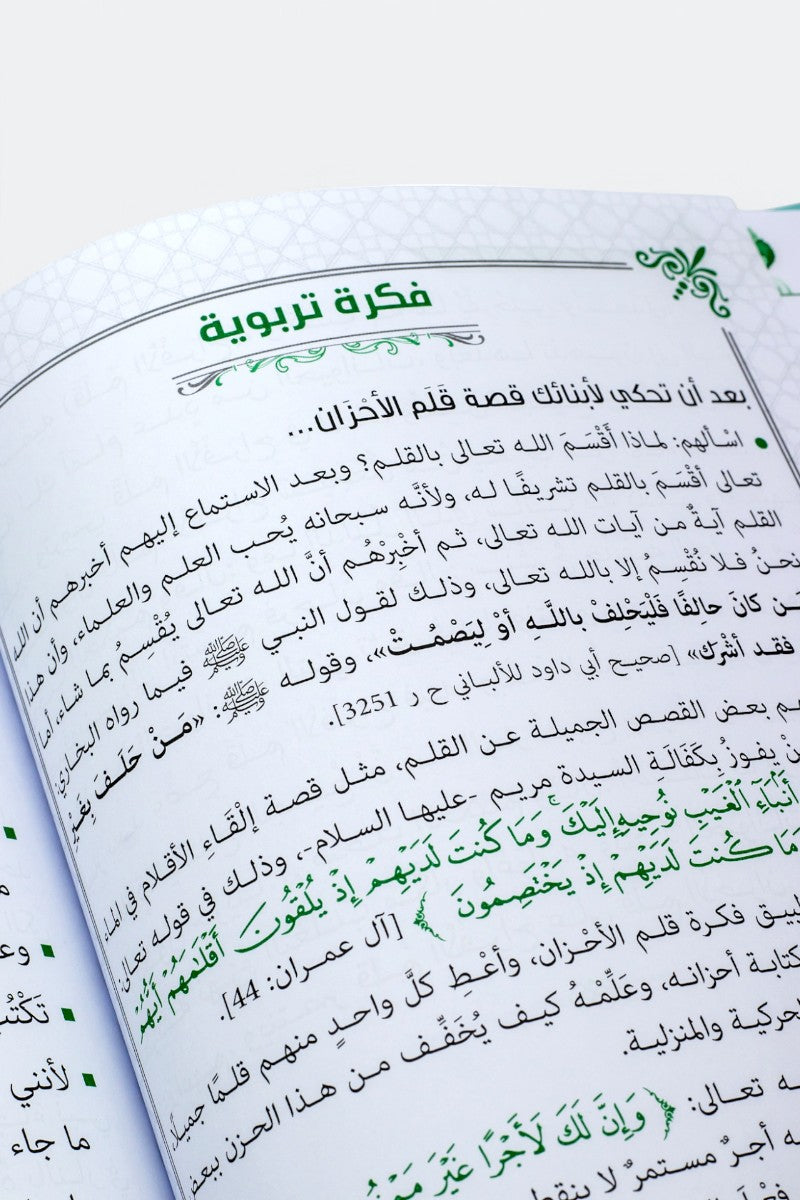 فكرة تربوية
بعد أن تحكي لأبنائك قصة قَلَم الأحْزَان...
اسْألهم: لماذا أَقْسَمَ الله تعالى بالقلم؟ وبعد الاستماع إليهم أخبرهم أن الله
تعالى أقْسَمَ بالقلم تشريفًا له، ولأنَّه سبحانه يُحب العلم والعلماء، وأن هذا
القلم آيةٌ من آيات الله تعالى، ثم أخْبِرْهُم أنَّ الله تعالى يُقْسِمُ بما شاء، أما
نحنُ فلا نُقْسِمُ إلا بالله تعالى، وذلك لقول النبي ﷺ فيما رواه البخاري:
كانَ حالِفًا فَلْيَحْلِفْ باللَّهِ أوْ لِيَصْمُتْ»، وقوله ﷺ: «مَنْ حَلَفَ بِغَيْرِ
فقد أشْرك» [صحيح أبي داود للألباني ح ر 3251].
بعض القصص الجميلة عن القلم، مثل قصة إلْقَاءِ الأقلام في الماء
يفوزُ بِكَفَالَةِ السيدة مريم -عليها السلام-، وذلك في قوله تعالى:
أَنۢبَآءِ ٱلۡغَيۡبِ نُوحِيهِ إِلَيۡكَۚ وَمَا كُنتَ لَدَيۡهِمۡ إِذۡ يُلۡقُونَ أَقۡلَٰمَهُمۡ أَيُّهُمۡ
مَا كُنتَ لَدَيۡهِمۡ إِذۡ يَخۡتَصِمُونَ ﴾ [آل عمران: 44].
فكرة قلم الأحْزان، وأعْطِ كلَّ واحدٍ منهم قلمًا جميلًا
كتابة أحزانه، وعَلِّمْهُ كيف يُخَفِّف من هذا الحزن ببعض
والمنزلية.
تعالى: ﴿ وَإِنَّ لَكَ لَأَجۡرًا غَيۡرَ
أجرٌ مستمرٌ لا
لأنني
ما جاء